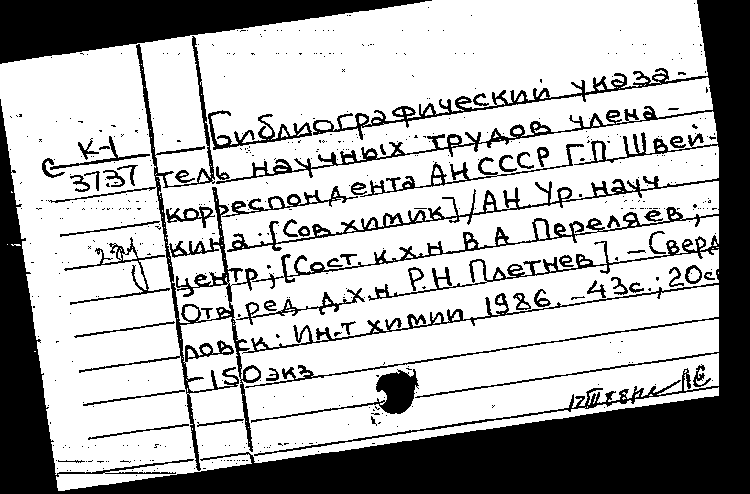 Библиографический указа-
С К-1
3737
тель научных трудов члена-
корреспондента АН СССР Г.П. Швей-
кина: [Сов. химик] / АН. Ур. науч.
центр; [Сост. к.х.н. В.А Переляев;
Отв. ред. д.х.н. Р.Н. Плетнев]. – Сверд
ловск: Ин-т химии, 1986. – 43с.; 20с
– 150 экз.